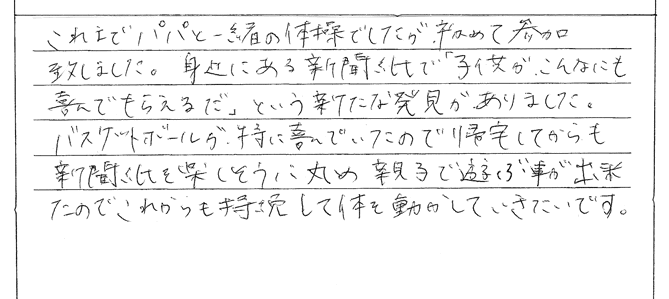 これまでパパと一緒の体操でしたが、初めて参加
致しました。身近にある新聞紙で「子供が、こんなにも
喜んでもらえるだ」という新たな発見がありました。
バスケットボールが、特に喜んでいたので帰宅してからも
新聞紙を楽しそうに丸め親子で遊ぶ事が出来
たのでこれからも持続して体を動かしていきたいです。